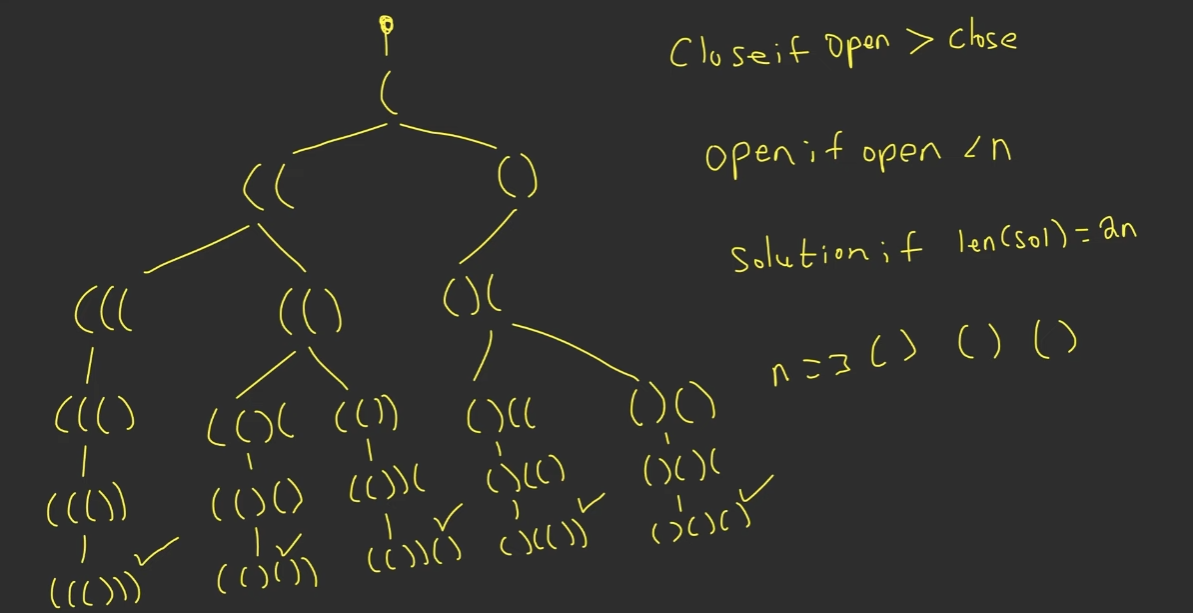 (
Close if open > close
(( ()
open if open < n
((( (() ()(
Solution if len(sol) = 2n
n = 3 () () ()
((() (()( (()) ()(( ()()
((()) (()() (())( ()(() ()()(
((())) (()()) (())() ()(()) ()()()